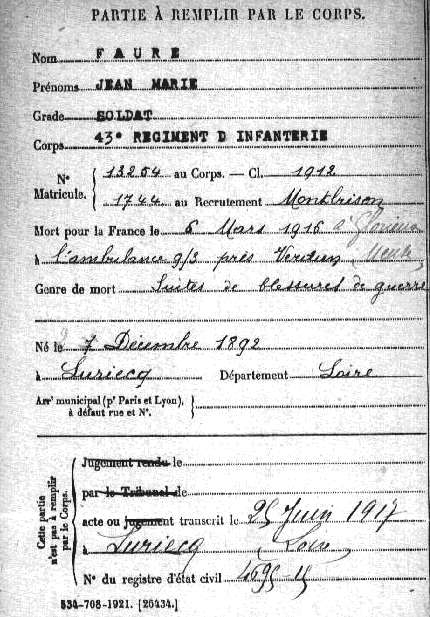 PARTIE À REMPLIR PAR LE CORPS.
Nom FAURE
Prénoms JEAN MARIE
Grade SOLDAT
Corps 43e REGIMENT D INFANTERIE
N° Matricule. { 13254 au Corps. — Cl. 1912
1744 au Recrutement Montbrison
Mort pour la France le 6 Mars 1916 à Glorieux
à l'ambulance 9/3 près Verdun
Genre de mort Suites de blessures de guerre
Né le 7 Décembre 1892
à Luriecq Département Loire
Arrt municipal (pr Paris et Lyon), à défaut rue et N°.
Cette partie n'est pas à remplir par le Corps.
Jugement rendu le
par le Tribunal de
acte ou jugement transcrit le 25 Juin 1917
à Luriecq Loire
N° du registre d'état civil
534-708-1921. [26434.]